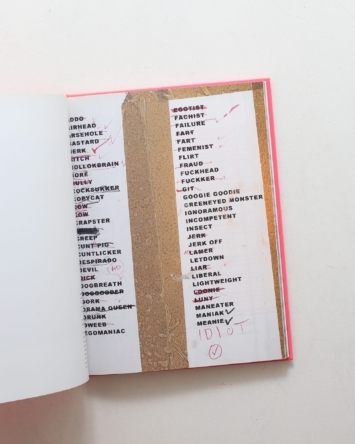 ADDO
AIRHEAD
ARSEHOLE
BASTARD
BERK
BITCH
BOLLOKBRAIN
BORE
BULLY
COCKSUKKER
COPYCAT
COW
CRAPSTER
CREEP
CUNT PIG
CUNTLICKER
DESPIRADO
DEVIL
DICK
DOGBREATH
DOGGOOBER
DORK
DRAMA QUEEN
DRUNK
DWEEB
EGOMANIAC
EGOTIST
FACHIST
FAILURE
FART
FEMENIST
FLIRT
FRAUD
FUCKHEAD
FUCKKER
GIT
GOOGIE GOODIE
GREENEYED MONSTER
IGNORAMOUS
INCOMPETENT
INSECT
JERK
JERK OFF
LAMER
LETDOWN
LIAR
LIBERAL
LIGHTWEIGHT
LOONIE
MANEATER
MANIAK
MEANIE
IDIOT